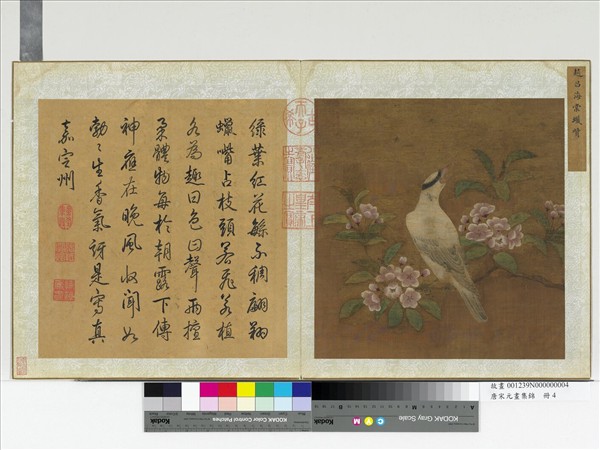 趙昌海棠蠟觜
綠葉紅花緐不稠翩翾
蠟嘴占枝頭若飛若植
名為趣曰色曰聲兩擅
柔體物每於朝露下傳
神應在晚風收聞如
勃〻生香氣訝是寫真
嘉定州
故畫 001239N000000004
唐宋元畫集錦 冊 4
Kodak
KODAK Color Control Patches
Kodak
KODAK Gray Scale
C Y M